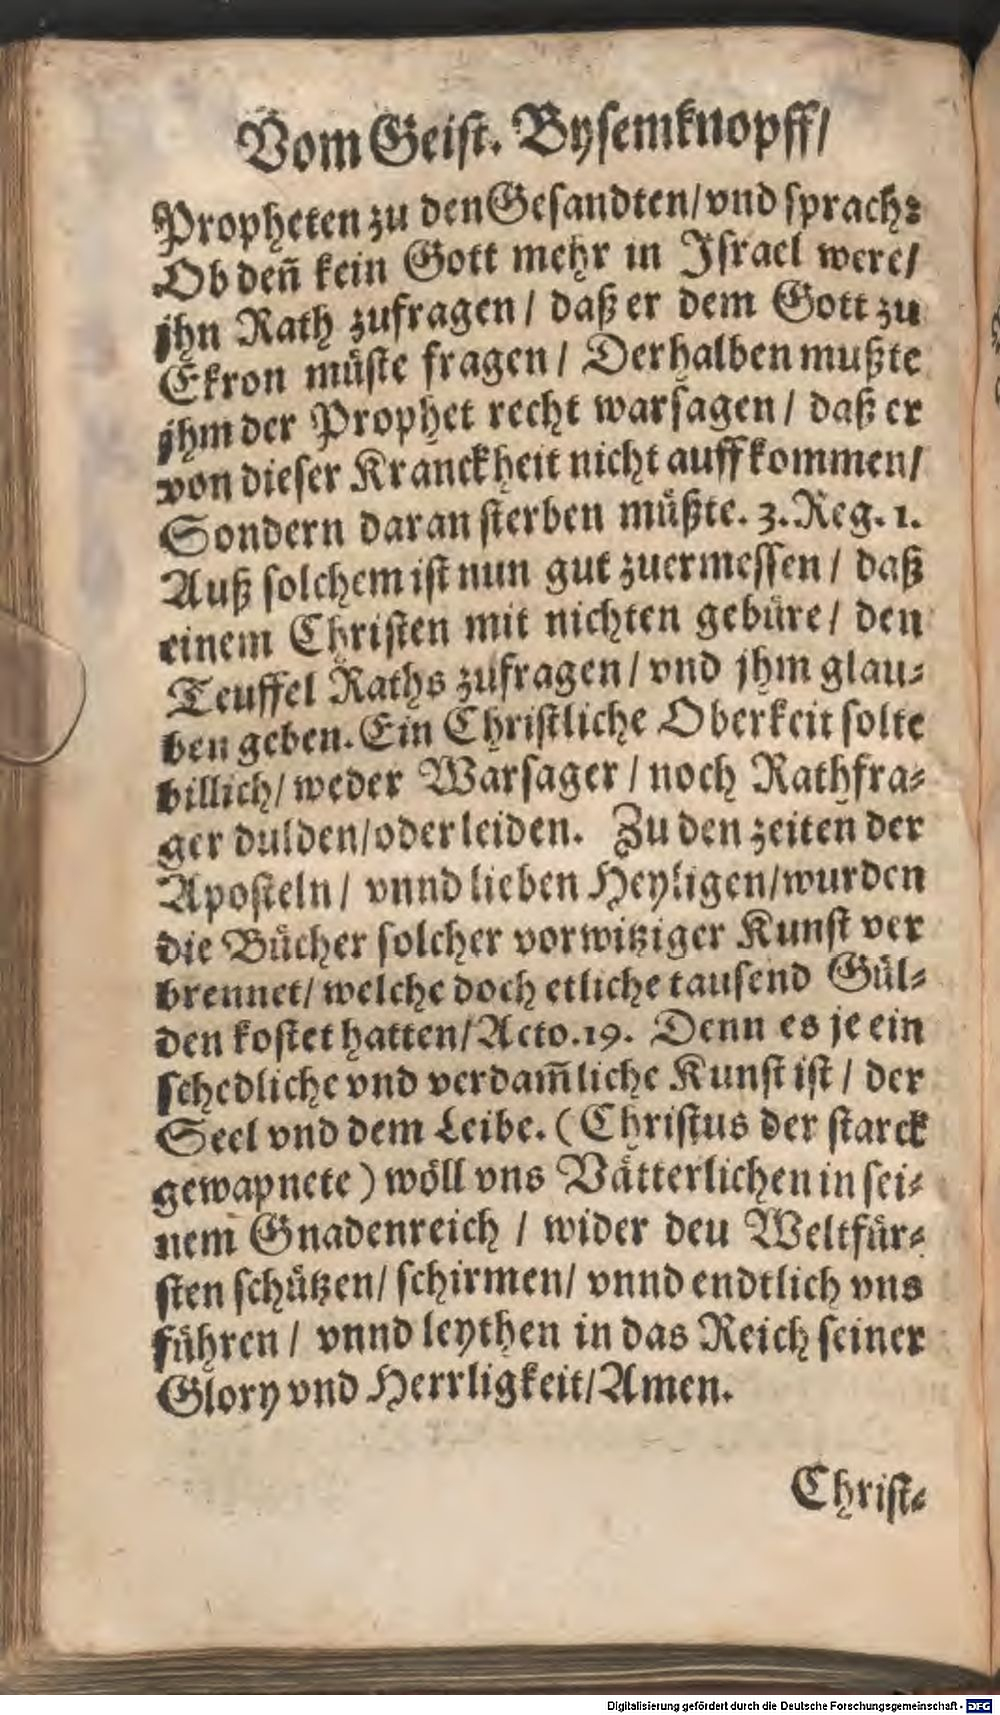 Vom Geist. Bysemknopff/
Propheten zu den Gesandten/ vnd sprach:
Ob deñ kein Gott mehr in Israel were/
jhn Rath zufragen / daß er dem Gott zu
Ekron müste fragen / Derhalben mußte
jhm der Prophet recht warsagen / daß er
von dieser Kranckheit nicht auffkommen/
Sondern daran sterben müßte. 3. Reg. 1.
Auß solchem ist nun gut zuermessen / daß
einem Christen mit nichten gebüre / den
Teuffel Raths zufragen / vnd jhm glau-
ben geben. Ein Christliche Oberkeit solte
billich/ weder Warsager / noch Rathfra-
ger dulden/oder leiden. Zu den zeiten der
Aposteln / vnnd lieben Heyligen/wurden
die Bücher solcher vorwitziger Kunst ver
brennet/ welche doch etliche tausend Gül-
den kostet hatten/Acto.19. Denn es je ein
schedliche vnd verdam̃liche Kunst ist / der
Seel vnd dem Leibe. (Christus der starck
gewapnete) wöll vns Vätterlichen in sei-
nem Gnadenreich / wider deu Weltfür-
sten schützen/ schirmen/ vnnd endtlich vns
führen / vnnd leythen in das Reich seiner
Glory vnd Herrligkeit/Amen.
Christ-
Digitalisierung gefördert durch die Deutsche Forschungsgemeinschaft - DFG